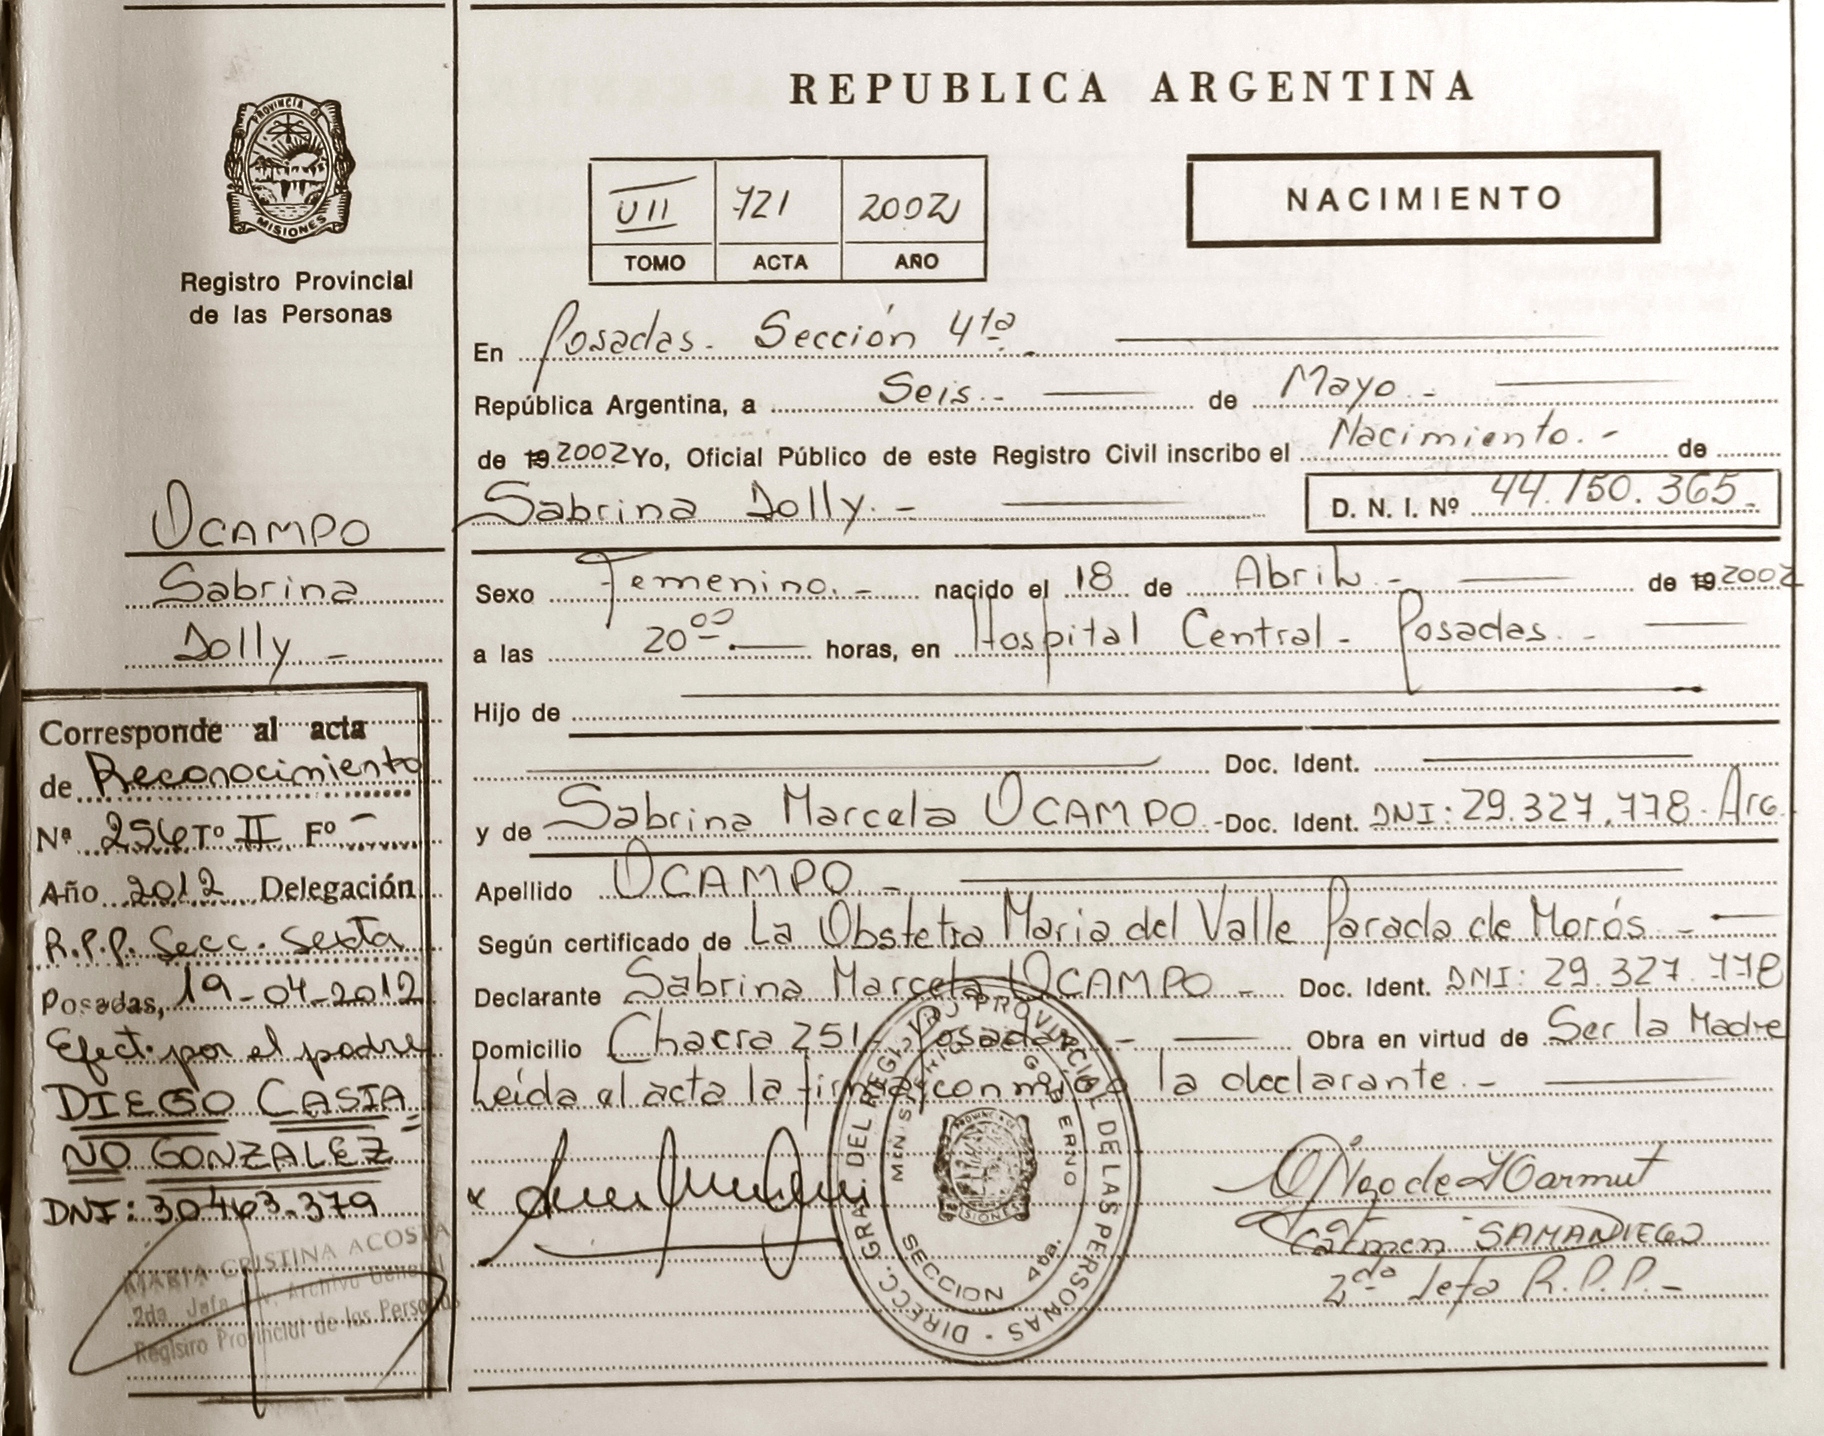 REPUBLICA ARGENTINA
PROVINCIA D
MISIONES
Registro Provincial
de las Personas
VII 721 2002
TOMO ACTA AÑO
NACIMIENTO
En Posadas - Sección 4ta.
República Argentina, a Seis.- de Mayo.-
de 19 2002 Yo, Oficial Público de este Registro Civil inscribo el Nacimiento.- de
Sabrina Dolly.- D. N. I. Nº 44.150.365.-
Sexo Femenino.- nacido el 18 de Abril.- de 19 2002
a las 20 00.- horas, en Hospital Central - Posadas.-
Hijo de
Doc. Ident.
y de Sabrina Marcela OCAMPO.- Doc. Ident. DNI: 29.327.778. Arg.
Apellido OCAMPO.-
Según certificado de La Obstetra Maria del Valle Parada de Morós.-
Declarante Sabrina Marcela OCAMPO - Doc. Ident. DNI: 29.327.778
Domicilio Chacra 251 - Posadas.- Obra en virtud de Ser la Madre
Leída el acta la firma conmigo la declarante.-
OCAMPO
Sabrina
Dolly -
Corresponde al acta
de Reconocimiento
Nº 256 Tº II Fº -
Año 2012 Delegación
R.P.P. Secc. Sexta
Posadas, 19-04-2012
Efect. por el padre
DIEGO CASIA=
NO GONZALEZ
DNI: 30.463.379
MARIA CRISTINA ACOSTA
2da. Jefa Div. Archivo General
Registro Provincial de las Personas
DIRECC. GRAL. DEL REGISTRO PROVINCIAL DE LAS PERSONAS -
MINISTERIO GOBIERNO
PROVINCIA
MISIONES
SECCION 4ta.
de Harmut
Carmen SAMANIEGO
2da Jefa R.P.P.-